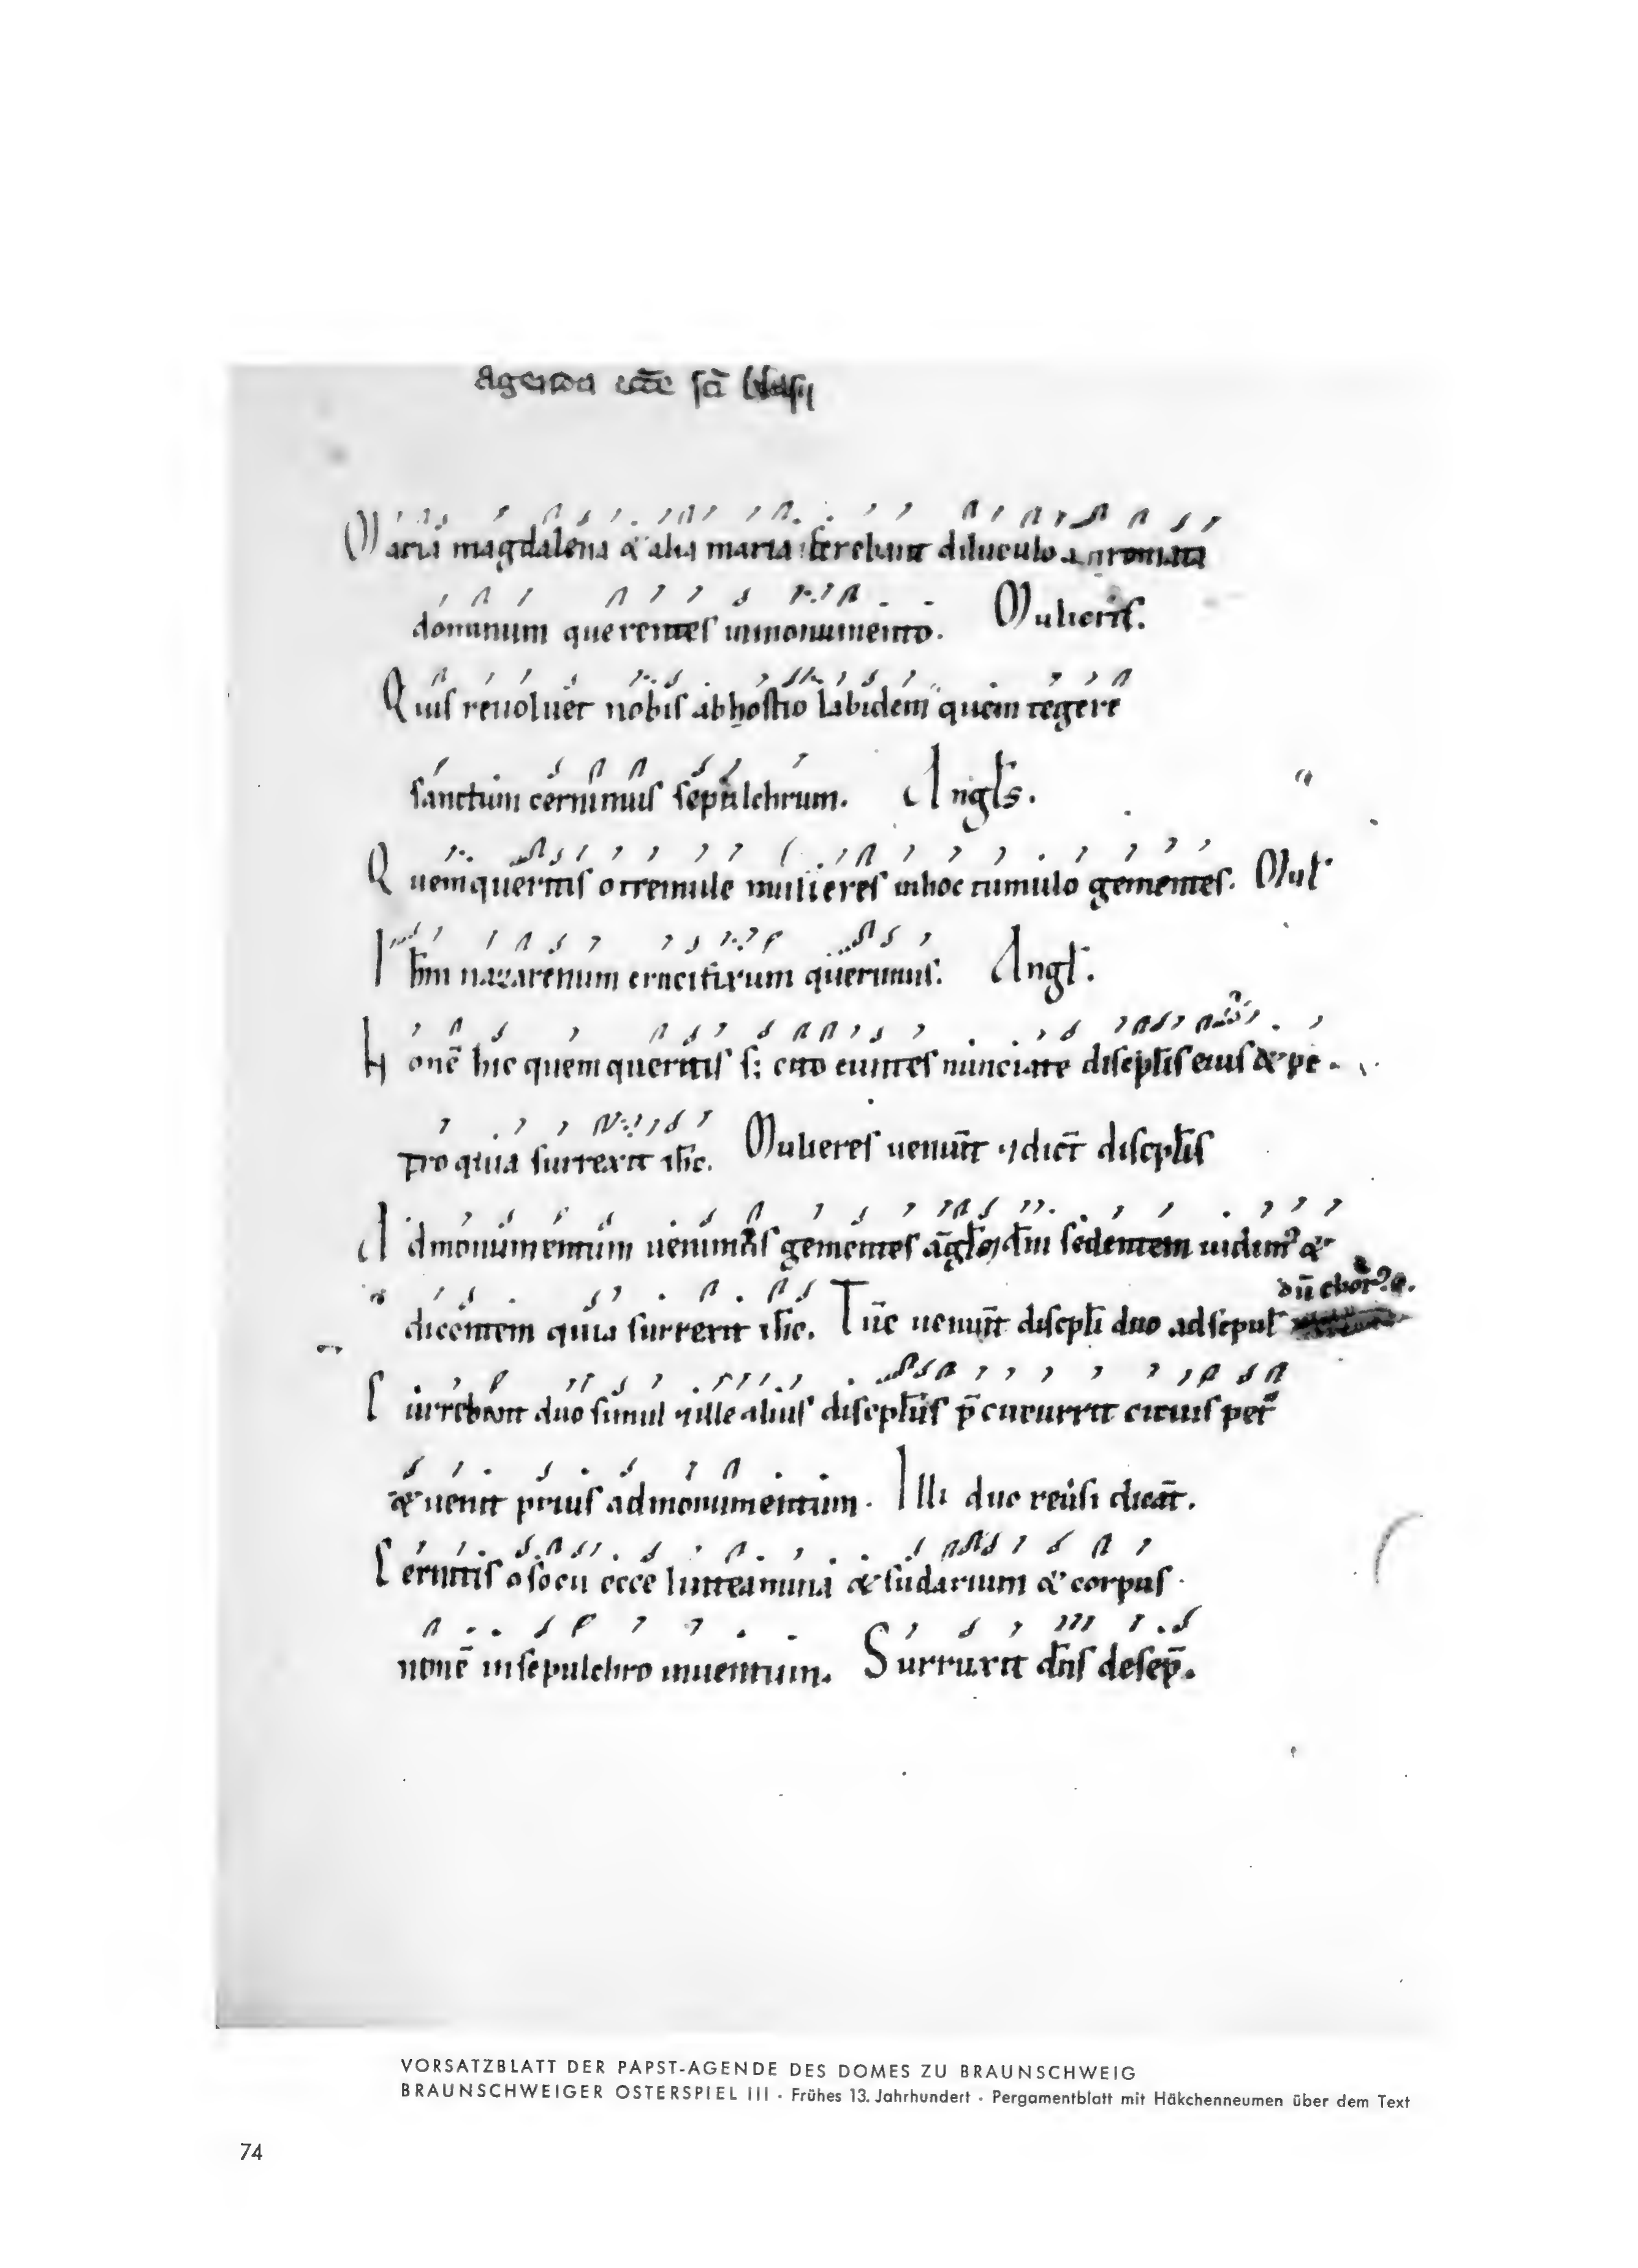 agenda ecc̄e sc̄i blasij
Maria magdalena & alia maria ferebant diluculo aromata
dominum querentes in monumento. Mulieres.
Quis reuoluet nobis ab hostio labidem quem tegere
sanctum cernimus sepulchrum. Angl̄s.
Quem queritis o tremule mulieres in hoc tumulo gementes. Mul̄
Ihm̄ nazarenum crucifixum querimus. Angl̄.
Non ē hic quem queritis s; cito euntes nunciate discipl̄is eius & pe
tro quia surrexit ih̄c. Mulieres ueniūt ⁊ dicт̄ discpl̄is
Ad monumentum uenimus gementes āgl̄m dn̄i sedentem uidim⁹ &
dū chor⁹
dicentem quia surrexit ih̄c. Tūc ueniūt discpl̄i duo ad sepul̄
Currebant duo simul ⁊ ille alius discpl̄us p̄cucurrit citius pet̄
& uenit prius ad monumentum. Illi duo reūsi dicāt.
Cernitis o socii ecce linteamina & sudarium & corpus
non ē in sepulchro inuentum. Surrexit dn̄s de sep̄.
VORSATZBLATT DER PAPST-AGENDE DES DOMES ZU BRAUNSCHWEIG
BRAUNSCHWEIGER OSTERSPIEL III · Frühes 13. Jahrhundert · Pergamentblatt mit Häkchenneumen über dem Text
74